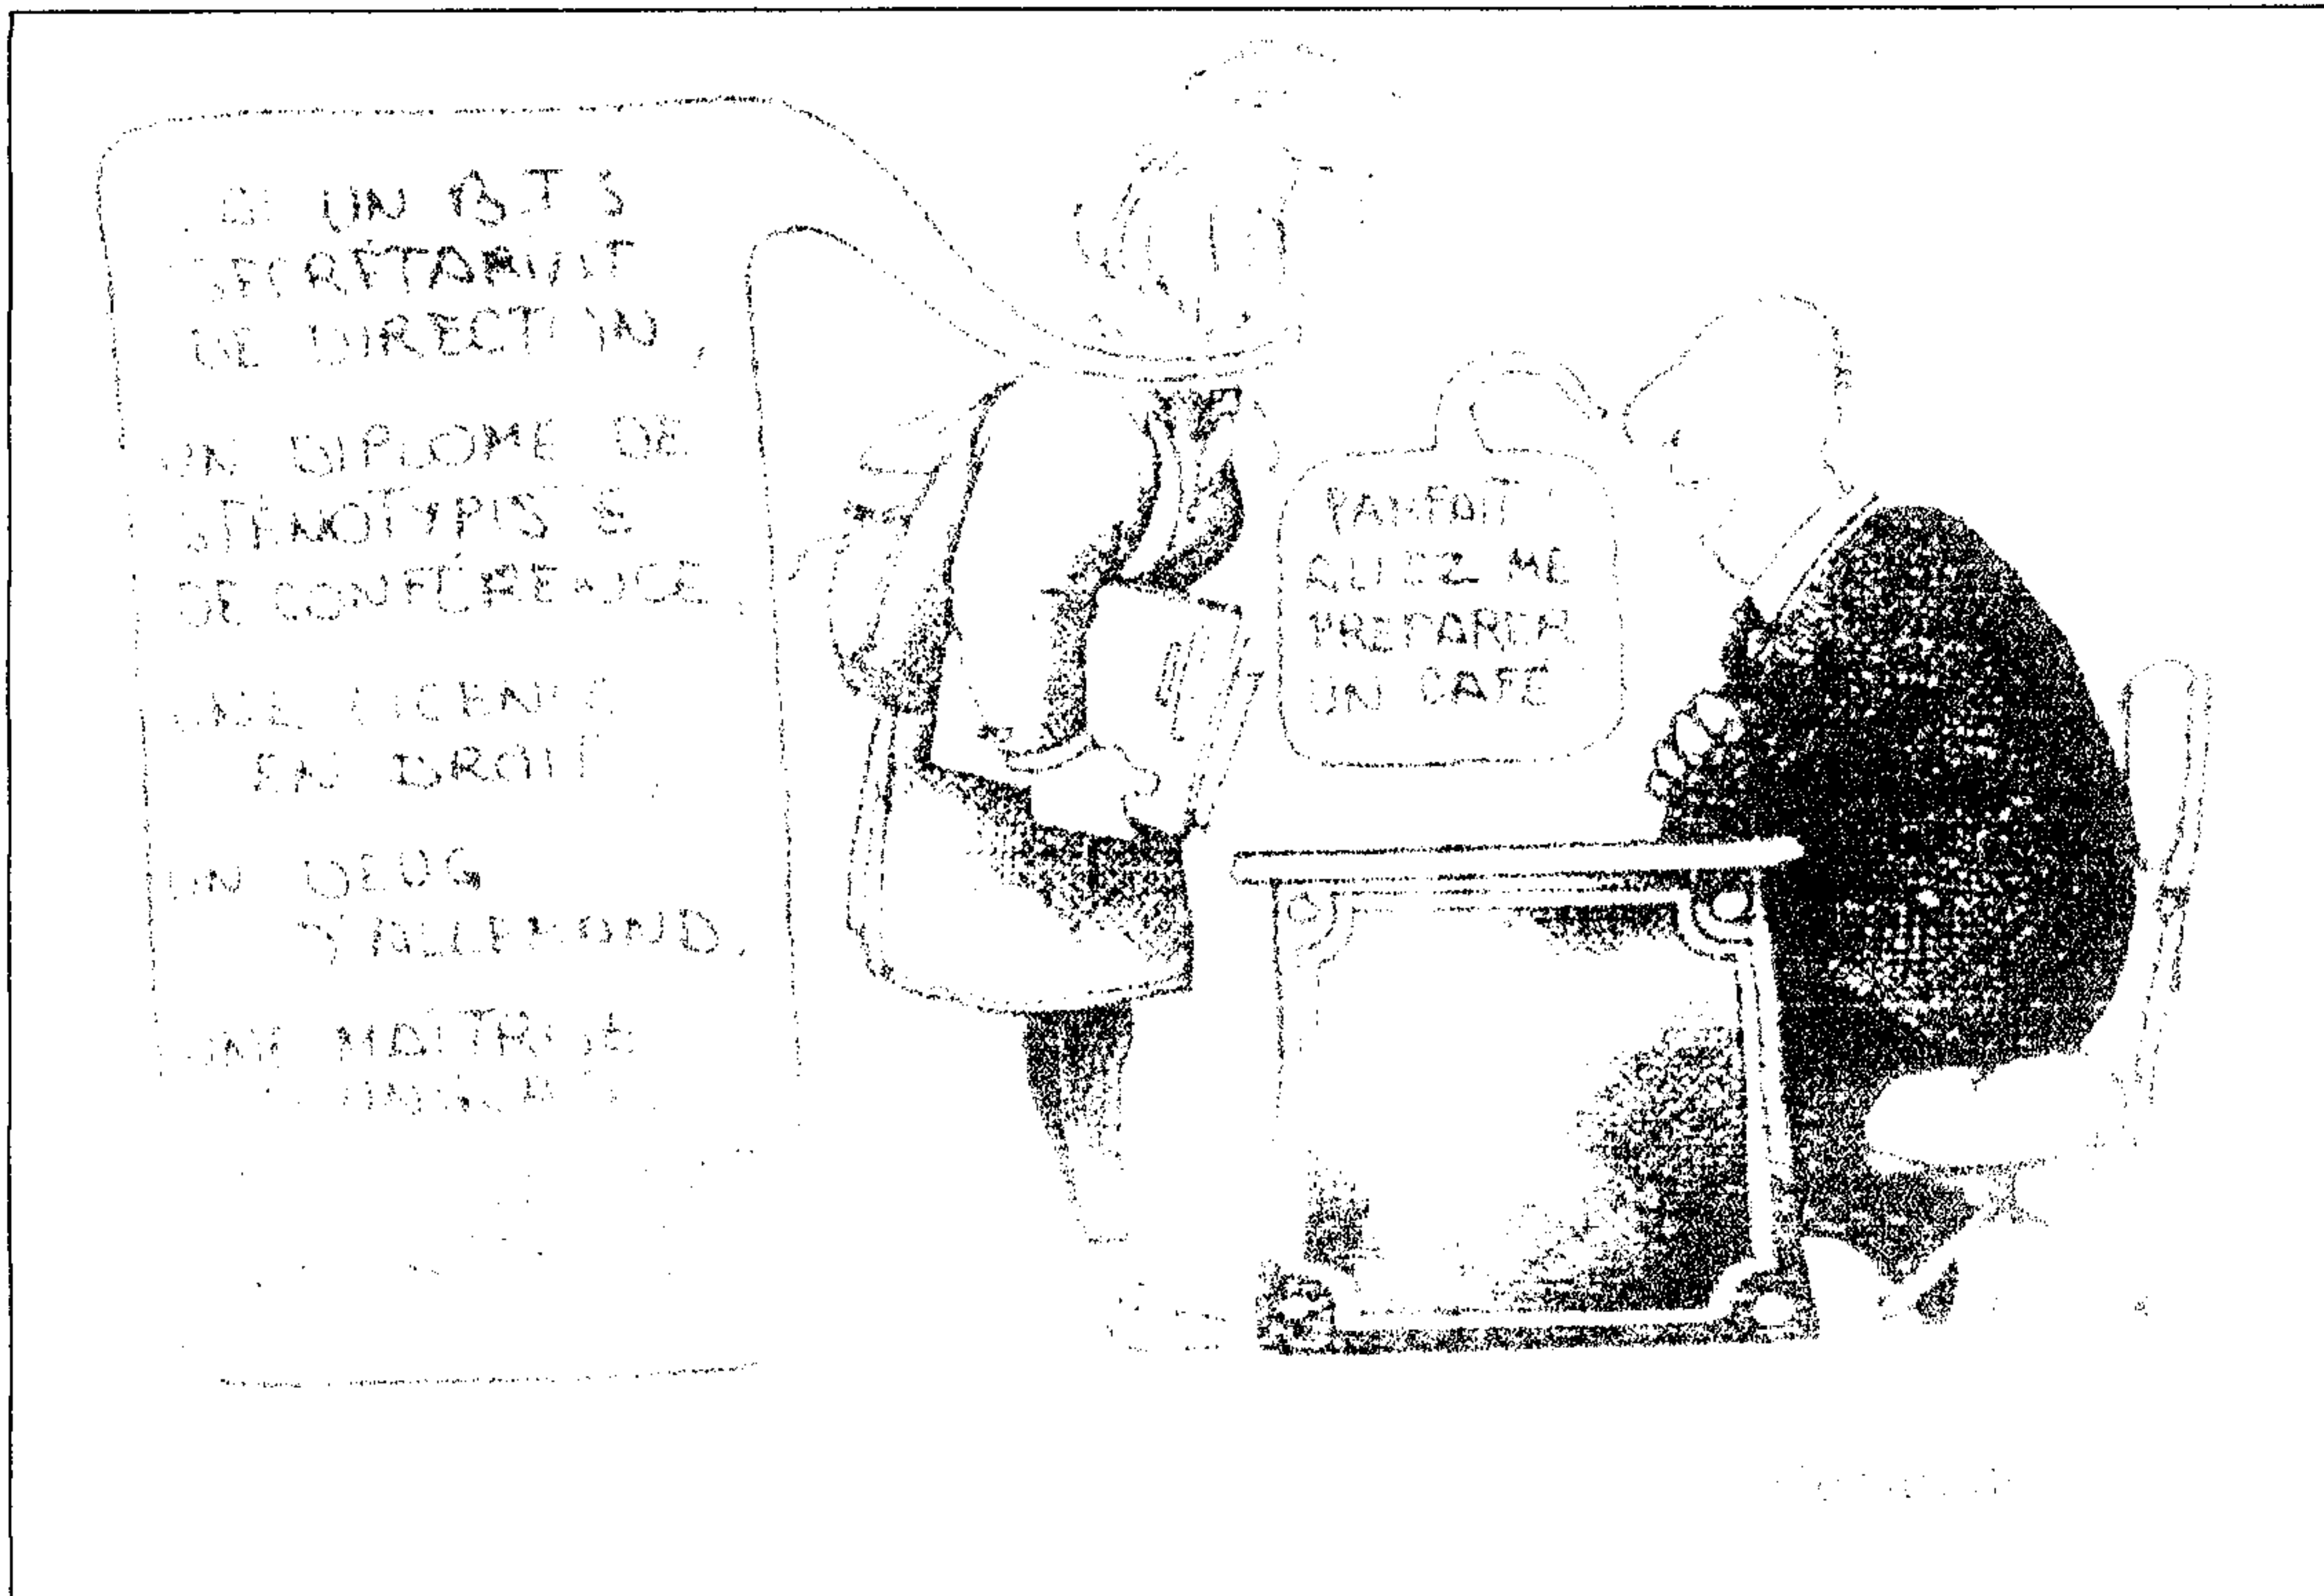 J'AI UN BTS
SECRÉTARIAT
DE DIRECTION,
UN DIPLOME DE
STÉNOTYPISTE
DE CONFÉRENCE,
UNE LICENCE
EN DROIT,
UN DEUG
D'ALLEMAND,
UNE MAÎTRISE
PARFAIT !
ALLEZ ME
PREPARER
UN CAFÉ